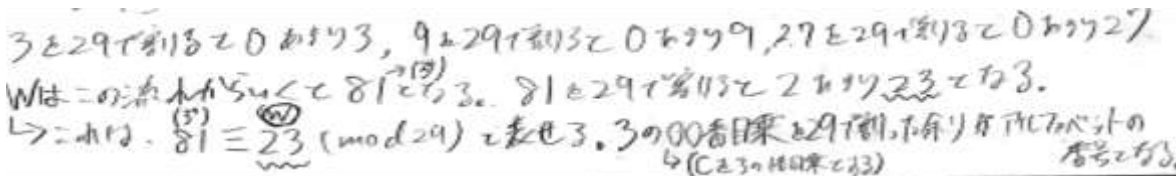 3を29で割ると0あまり3, 9を29で割ると0あまり9, 27を29で割ると0あまり27
Wはこの流れからいくと81となる。81を29で割ると2あまり23となる.
→(3⁴)
↳これは. 81≡23 (mod 29) と表せる. 3の○○番目乗を29で割った余りがアルファベットの番号となる.
(3⁴) W
↳(Cを3の1番目乗とする)